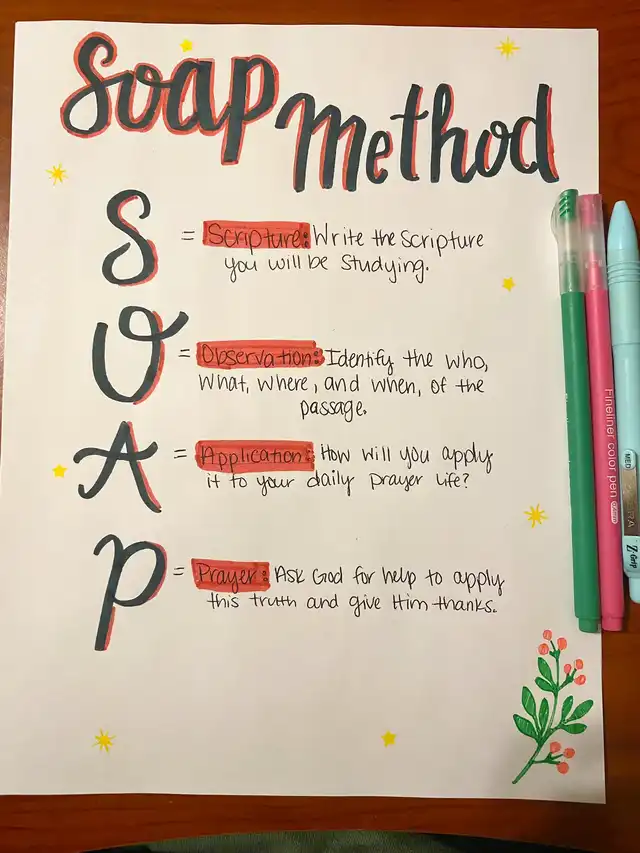 Soap Method
S = Scripture: Write the scripture
you will be studying.
O = Observation: Identify the who,
what, where, and when, of the
passage.
A = Application: How will you apply
it to your daily prayer life?
P = Prayer: Ask God for help to apply
this truth and give Him thanks.
Fineliner color pen
MED
Z-Grip